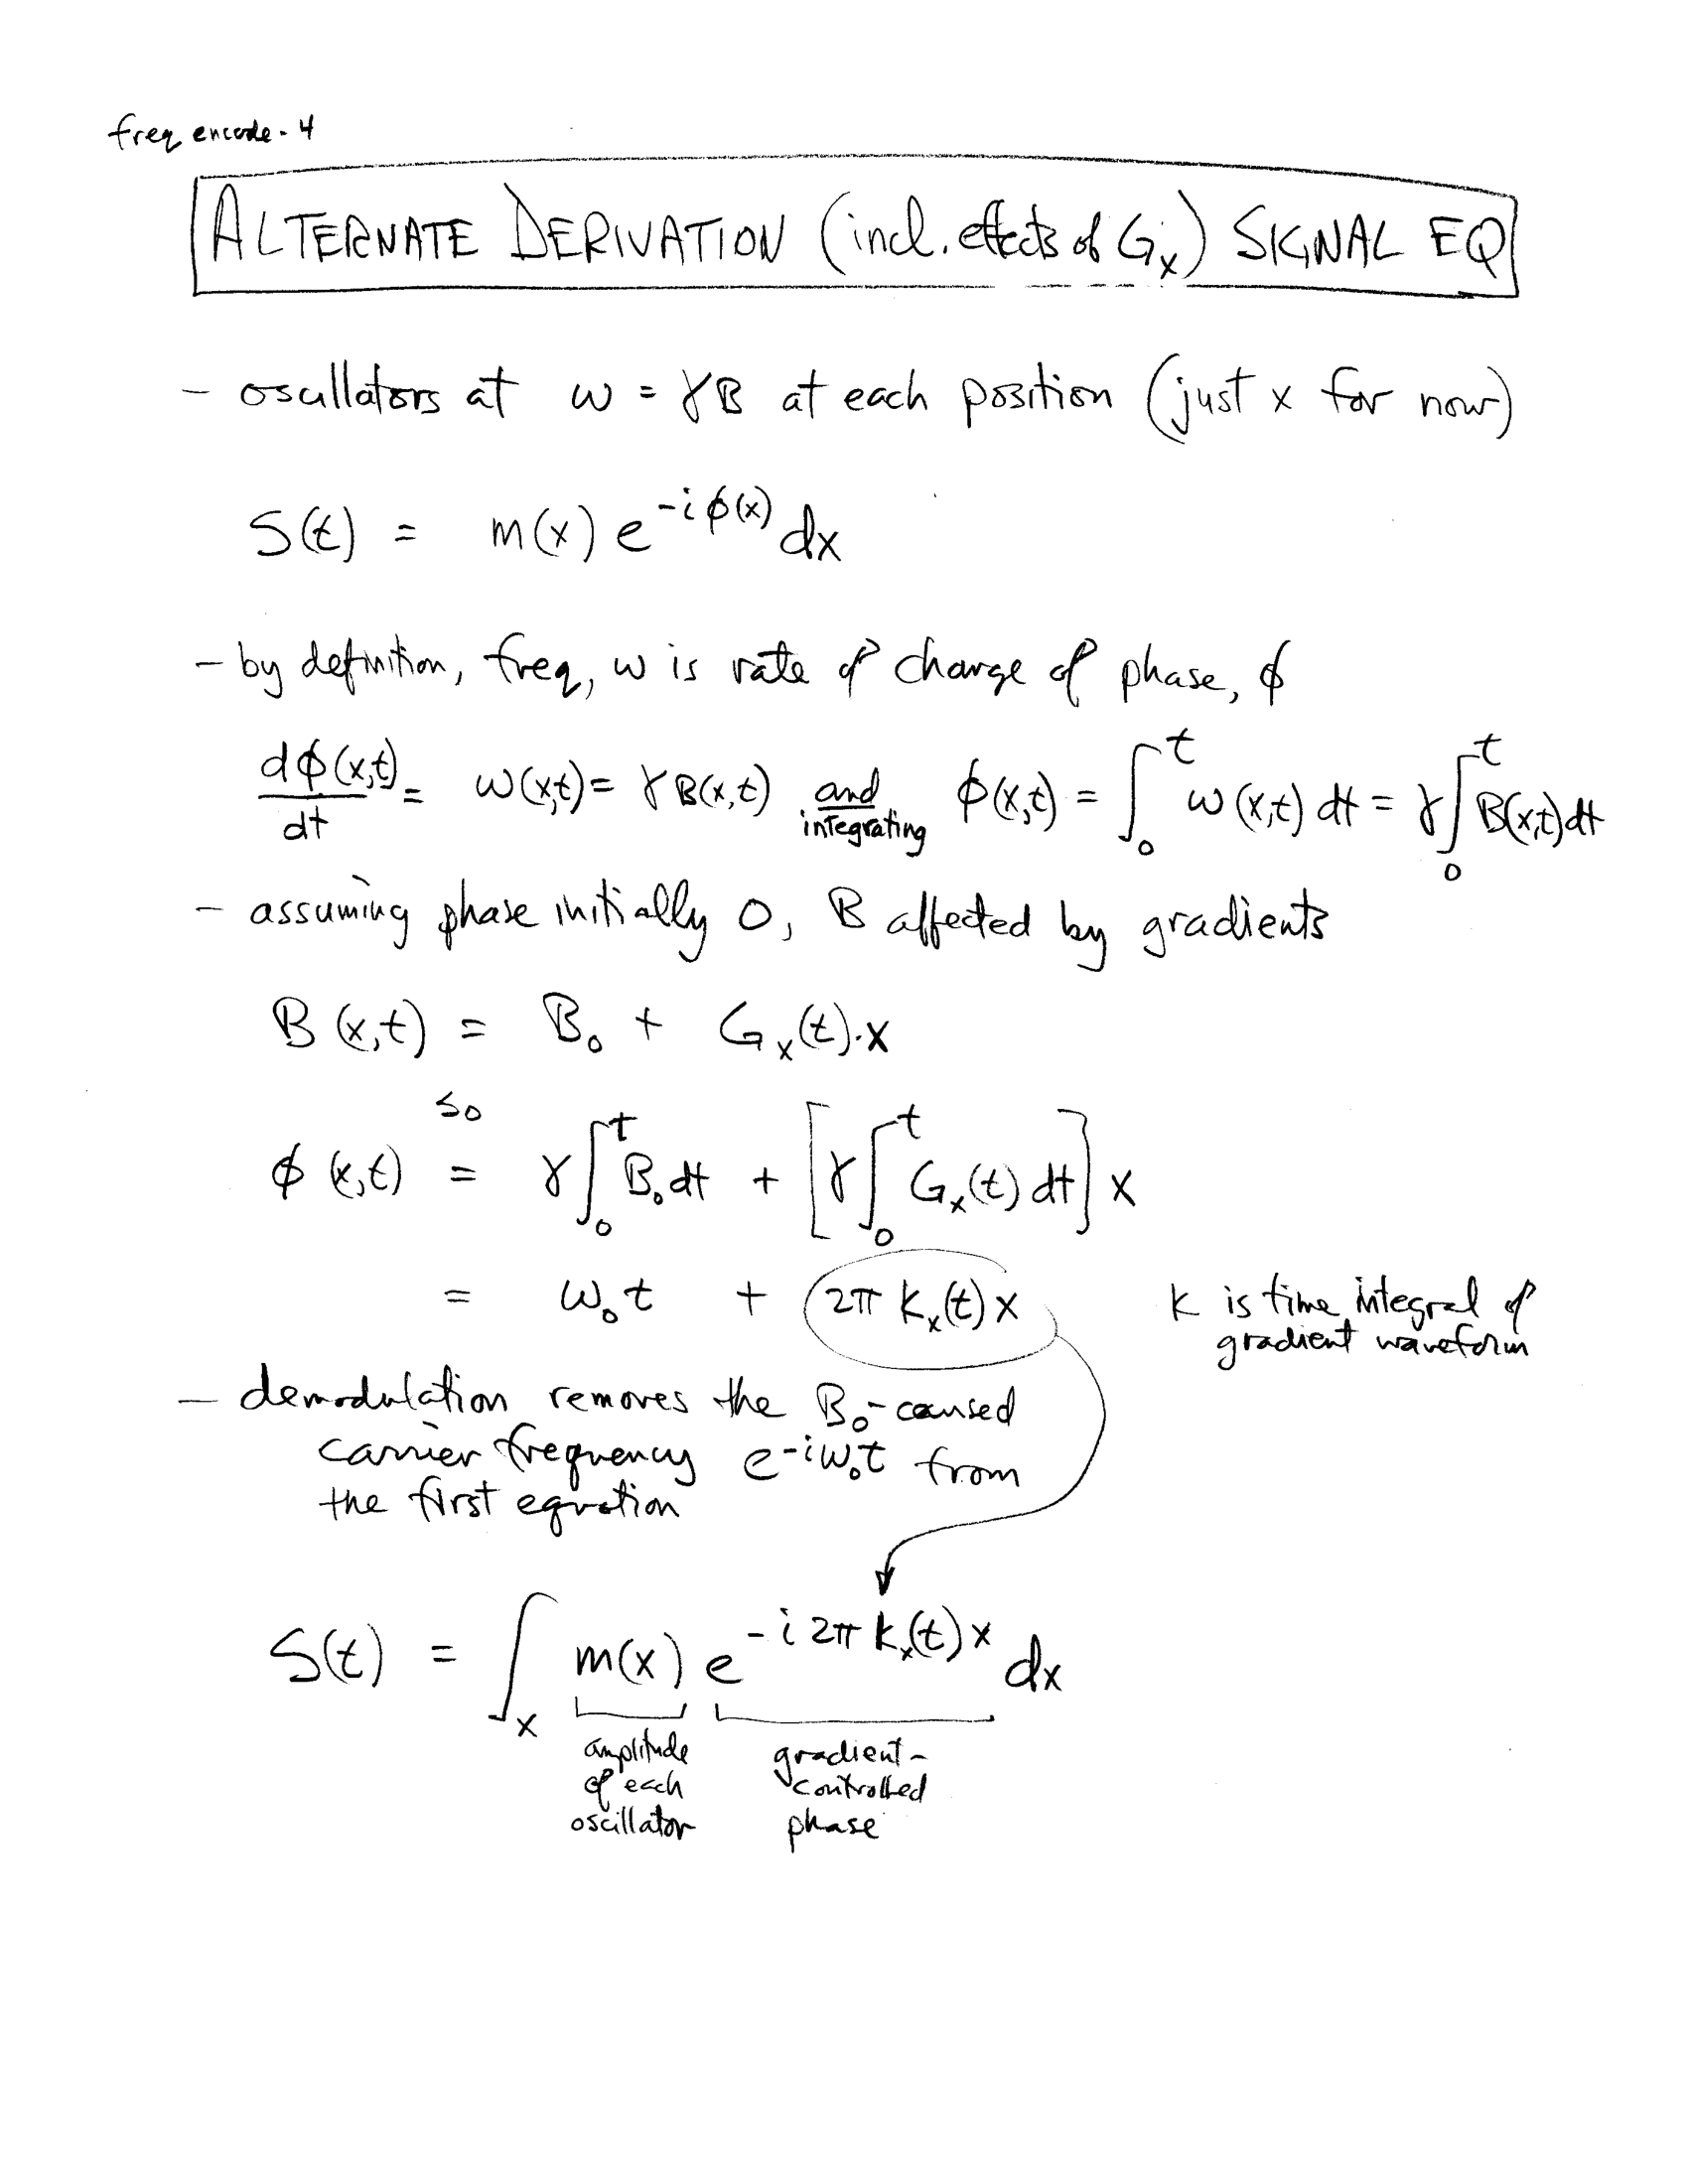 freq encode - 4
ALTERNATE DERIVATION (incl. effects of Gₓ) SIGNAL EQ
- oscillators at ω = γB at each position (just x for now)
S(t) = m(x) e^{-iϕ(x)} dx
- by definition, freq, ω is rate of change of phase, ϕ
dϕ(x,t)/dt = ω(x,t) = γB(x,t) and integrating ϕ(x,t) = ∫₀ᵗ ω(x,t) dt = γ∫₀ᵗ B(x,t) dt
- assuming phase initially 0, B affected by gradients
B(x,t) = B₀ + Gₓ(t)·x
so
ϕ(x,t) = γ∫₀ᵗ B₀ dt + [γ∫₀ᵗ Gₓ(t) dt] x
= ω₀t + 2π kₓ(t) x
k is time integral of
gradient waveform
- demodulation removes the B₀-caused
carrier frequency e^{-iω₀t} from
the first equation
S(t) = ∫ₓ m(x) e^{-i2π kₓ(t) x} dx
amplitude
of each
oscillator
gradient-
controlled
phase